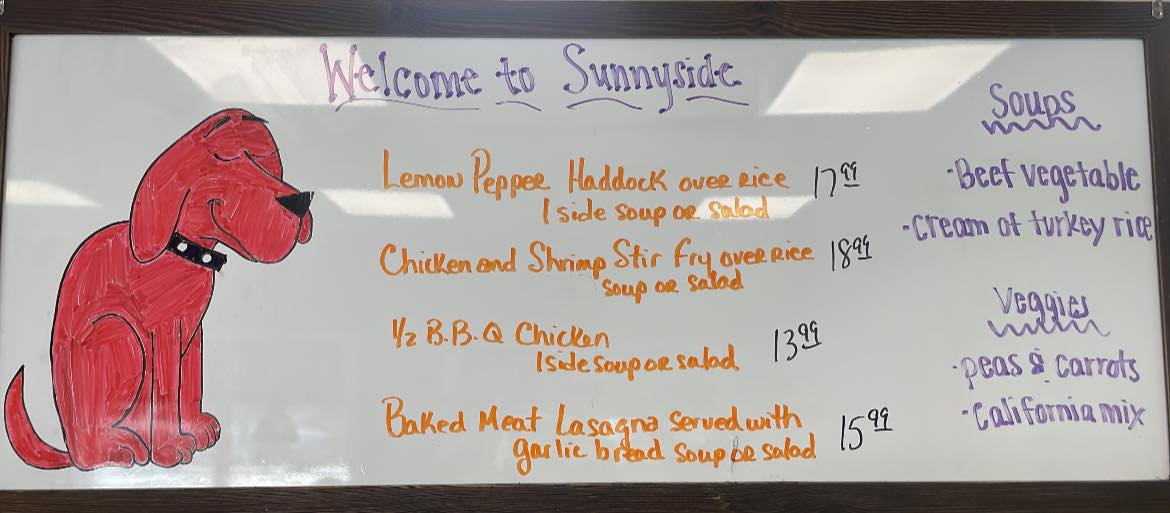 Welcome to Sunnyside
Lemon Pepper Haddock over rice 17.99
1 side soup or salad
Chicken and Shrimp Stir Fry over Rice 18.99
soup or salad
1/2 B.B.Q Chicken 13.99
1 side soup or salad
Baked Meat Lasagna Served with 15.99
garlic bread soup or salad
Soups
·Beef vegetable
·cream of turkey rice
Veggies
·peas & carrots
·California mix